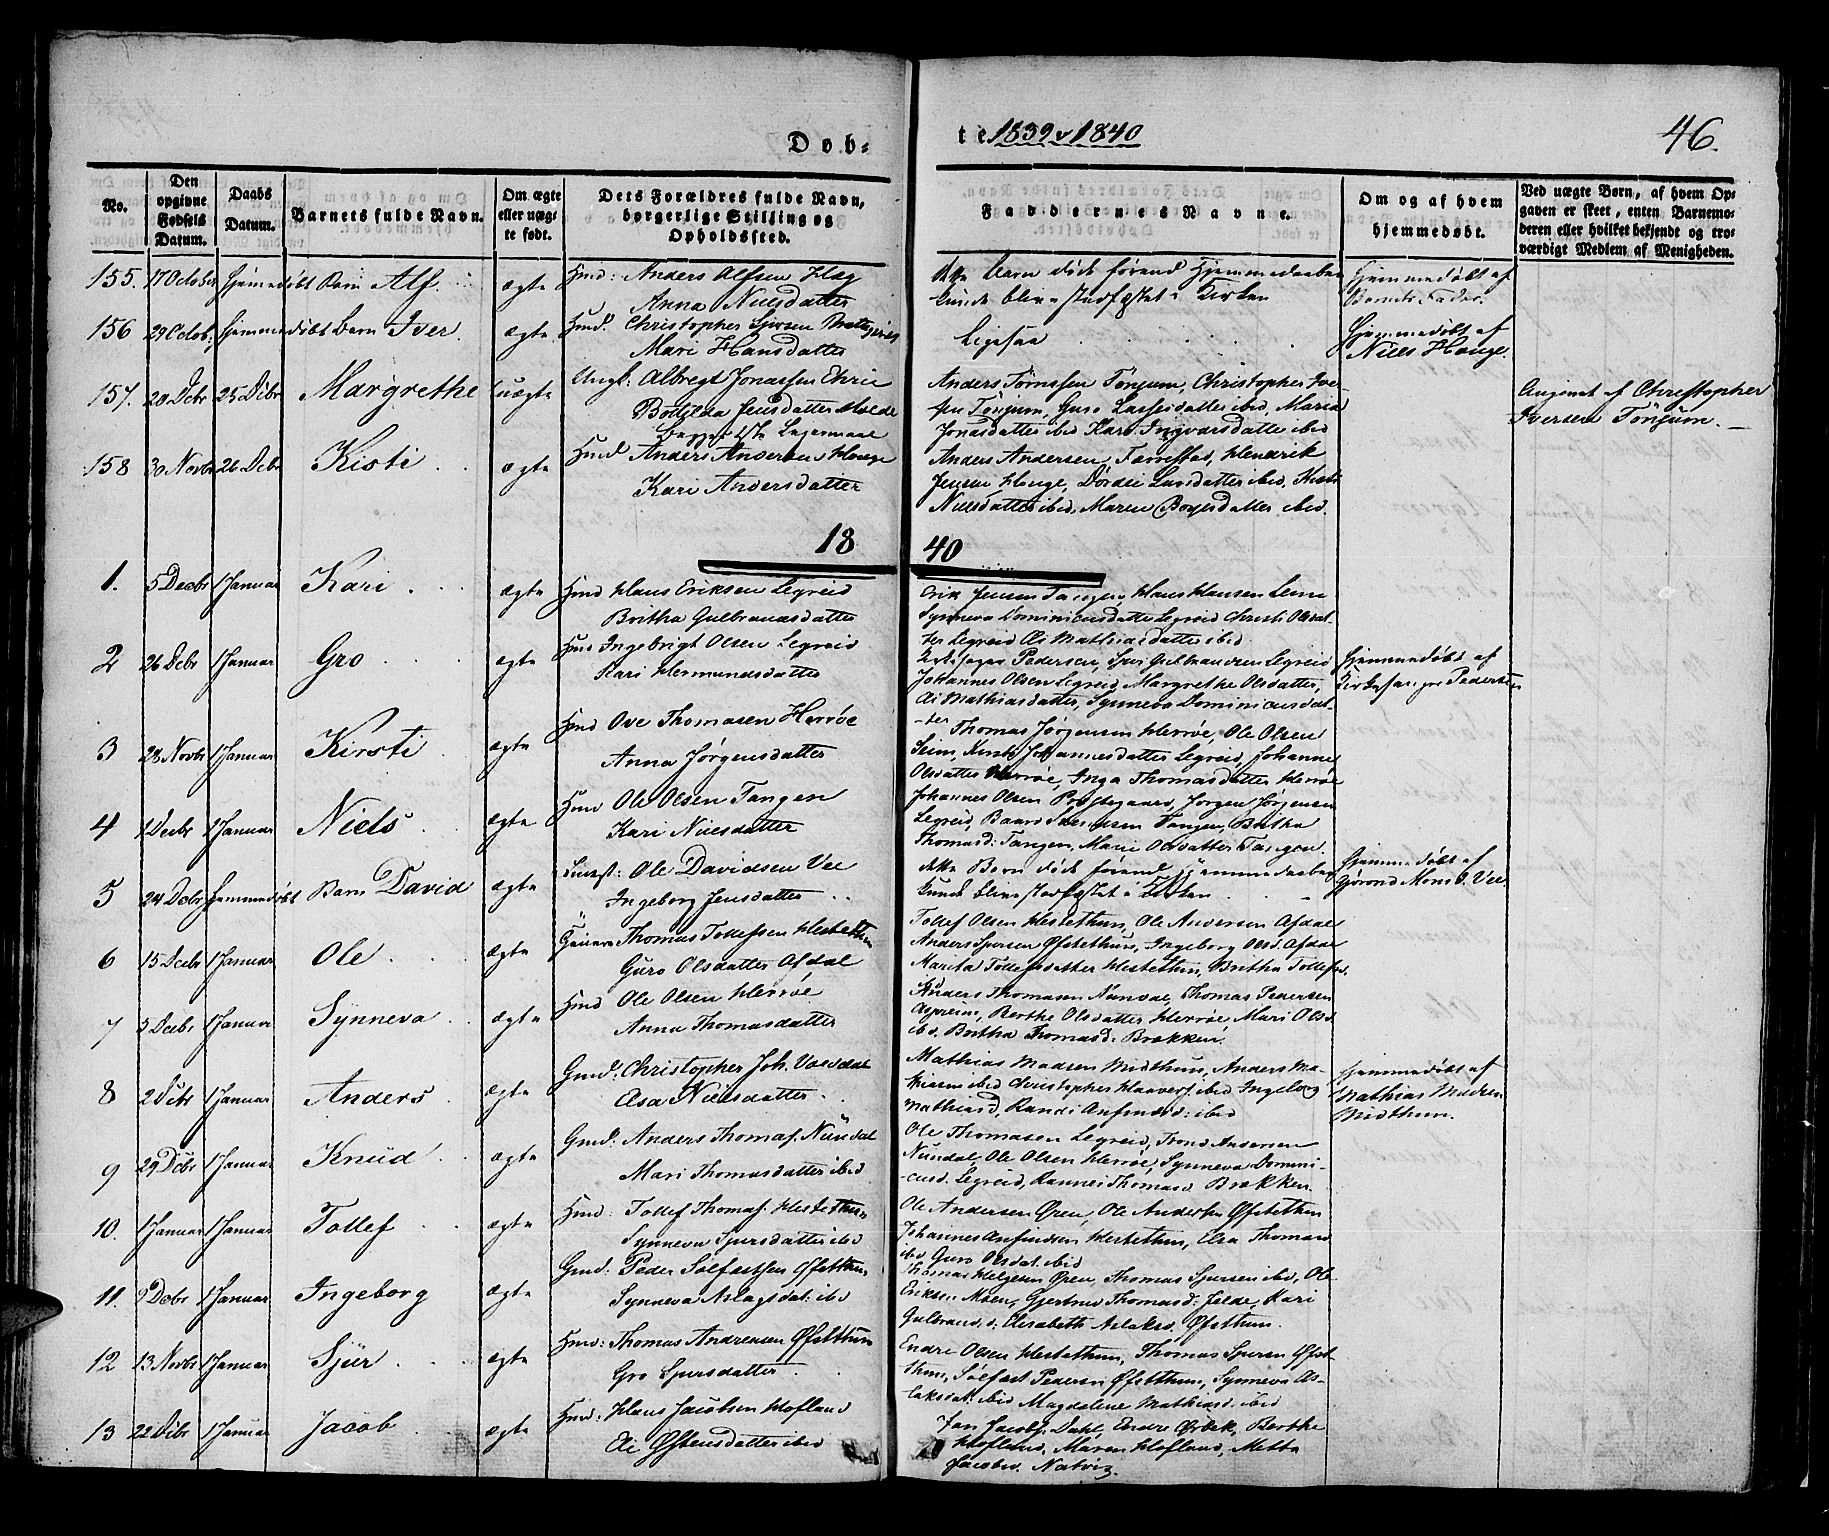 Døb-
te 1839 & 1840
46.
No.
Den opgivne Fødsels Datum.
Daabs Datum.
Barnets fulde Navn.
Om ægte eller uægte født.
Dets Forældres fulde Navn, borgerlige Stilling og Opholdssted.
Faddernes Navne.
Om og af hvem hjemmedøbt.
Ved uægte Børn, af hvem Opgaven er skeet, enten Barnemoderen eller hvilket bekjendt og troværdigt Medlem af Menigheden.
155. 17 October hjemmedøbt Barn Alf. ægte Hmd: Anders Olsen Hæg
Anna Nielsdatter
dette Barn døde førend Hjemmedaaben
kunde blive stadfæstet i Kirken
Hjemmedøbt af
Barnets Fader.
156 29 Octob: hjemmedøbt Barn Iver. ægte Hmd. Christopher Sjursen
Mari Hansdatter
Ligesaa
Hjemmedøbt af
Niels Houge.
157. 20 Debr 25 Debr Margrethe uægte Ungk: Albregt Jonassen Ehrie
Botilda Jensdatter Molde
Begges 1ste Leiermaal
Anders Tørrissen Tønjum, Christopher Iversen Tønjum, Guro Lassesdatter ibid, Maria
Jonasdatter ibid Kari Ingvarsdatter ibid
Angivet af Christopher
Iversen Tønjum.
158 30 Novbr 26 Debr Kisti ægte Hmd Anders Andersen Houge
Kari Andersdatter
Anders Andersen Tarrestad, Hendrik
Jensen Houge, Dørdei Larsdatter ibid, Kirsti
Nielsdatter ibid, Maren Børgesdatter ibid.
18 40
1. 5 Decbr 1 Januar Kari ægte Hmd Hans Eriksen Legreid
Britha Gulbrandsdatter
Erik Jensen Tangen Hans Hansen Lem
Synneva Dominicusdatter Legreid Christi Olsdatter Legreid Eli Mathiasdatter ibid
2 26 Debr 1 Januar Gro ægte Hmd Ingebrigt Olsen Legreid
Kari Hermundsdatter
Kirkesanger Pedersen, Sjur Gulbrandsen Legreid
Johannes Olsen Legreid Margrethe Olsdatter,
Eli Mathiasdatter, Synneva Dominicusdatter
Hjemmedøbt af
Kirkesanger Pedersen
3 28 Novbr 1 Januar Kirsti ægte Hmd Ove Thomasen Herrøe
Anna Jørgensdatter
Thomas Jørgensen Herrøe, Ole Olsen
Seim, Kirsti Johannesdatter Legreid, Johanne
Olsdatter Herrøe, Inga Thomasdatter Herrøe
4 1 Decbr 1 Januar Niels ægte Hmd Ole Olsen Tangen
Kari Nielsdatter
Johannes Olsen Prestegaard, Jørgen Jørgensen
Legreid, Baard Tangen, Britha
Thomasd: Tangen, Marie Olsdatter Tangen.
5 24 Debr hjemmedøbt Barn David ægte Ole Davidsen Vee
Ingeborg Jensdatter
dette Barn døde førend Hjemmedaaben
kunde blive stadfæstet i Kirken
Hjemmedøbt af
Mons O. Vee
6 15 Decbr 1 Januar Ole ægte Thomas Tollefsen Hestethun
Guro Olsdatter Afdal
Tollef Olsen Hestethun, Ole Andersen Afdal
Anders Sjursen Øfstethun, Ingeborg Olsd. Afdal
Marita Tollefsdatter Hestethun, Britha Tollefsd.
7 5 Decbr 1 Januar Synneva ægte Hmd Ole Olsen Herrøe
Anna Thomasdatter
Anders Thomasen Nundal, Thomas Pedersen
Asprheim, Berthe Olsdatter Herrøe, Mari Olsd.
ibd. Britha Thomasd. Brækken.
8 2 Debr 1 Januar Anders ægte Gmd: Christopher Joh. Volddal
Elsa Nielsdatter
Mathias Madsen Midthun, Anders Ma-
thiasen ibid Christopher Haavers. ibid Ingeborg
Mathiasd, Randi Anfinsd. ibid
Hjemmedøbt af
Mathias Madsen
Midthun.
9 29 Debr 1 Januar Knud ægte Gmd: Anders Thomas. Nundal
Mari Thomasdatter ibid
Ole Thomasen Legreid, Trond Andersen
Nundal, Ole Olsen Herrøe, Synneva Domini-
cusd. Legreid, Rannei Thomasd Brækken
10. 1 Januar 1 Januar Tollef ægte Hmd: Tollef Thomas. Hestethun
Synneva Sjursdatter ibid
Ole Andersen Øren, Ole Andersen Øfstethun
Johannes Anfindsen Hestethun, Elsa Thomasd
ibid Guro Olsdat. ibid
11. 9 Debr 1 Januar Ingeborg ægte Gmd: Peder Solfestsen Øfstethun
Synneva Aslagsdat. ibd
Thomas Helgesen Øren, Thomas Sjursen ibid, Ole
Eriksen Moen, Gjertrud Thomasd: Jelde, Kari
Gulbrandsd: Elisabeth Aslaksd. Øfstthun.
12 13 Novbr 1 Januar Sjur ægte Hmd: Thomas Andersen Øfstthun
Gro Sjursdatter
Endre Olsen Hestethun, Thomas Sjursen Øfst-
thun, Solfæst Pedersen Øfstthun, Synneva As-
laksdat. ibid Magdalene Mathiasd. ibid
13 22 Debr 1 Januar Jacob ægte Hmd: Hans Jacobsen Hofland
Eli Østensdatter ibid
Jan Jacobs. Dahl, Endre Ørbek, Berthe
Hofland, Maren Hofland, Metta
Jacobsd. Natvig.